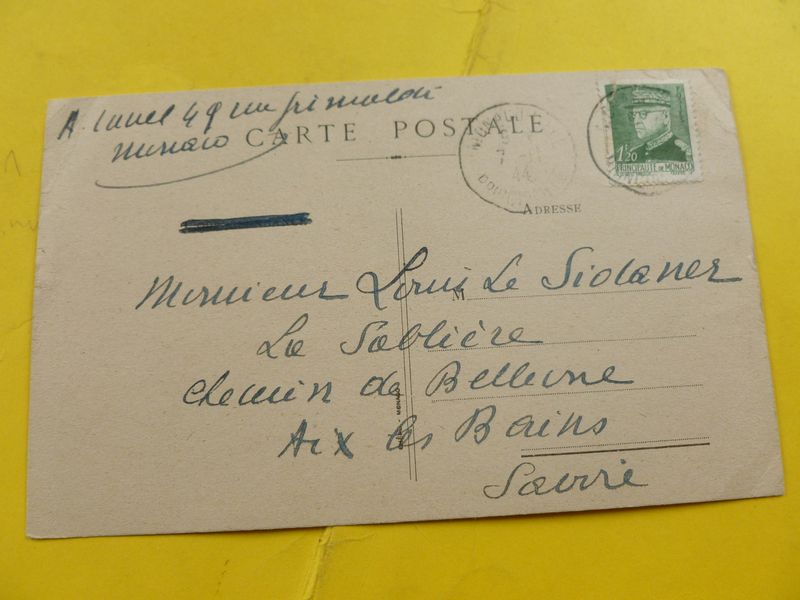 A. Lunel 49 rue Grimaldi
Monaco
CARTE POSTALE
44
1F20
PRINCIPAUTÉ DE MONACO
ADRESSE
M
Monsieur Louis Le Sidaner
La Sablière
Chemin de Bellevue
Aix les Bains
Savoie
MONACO